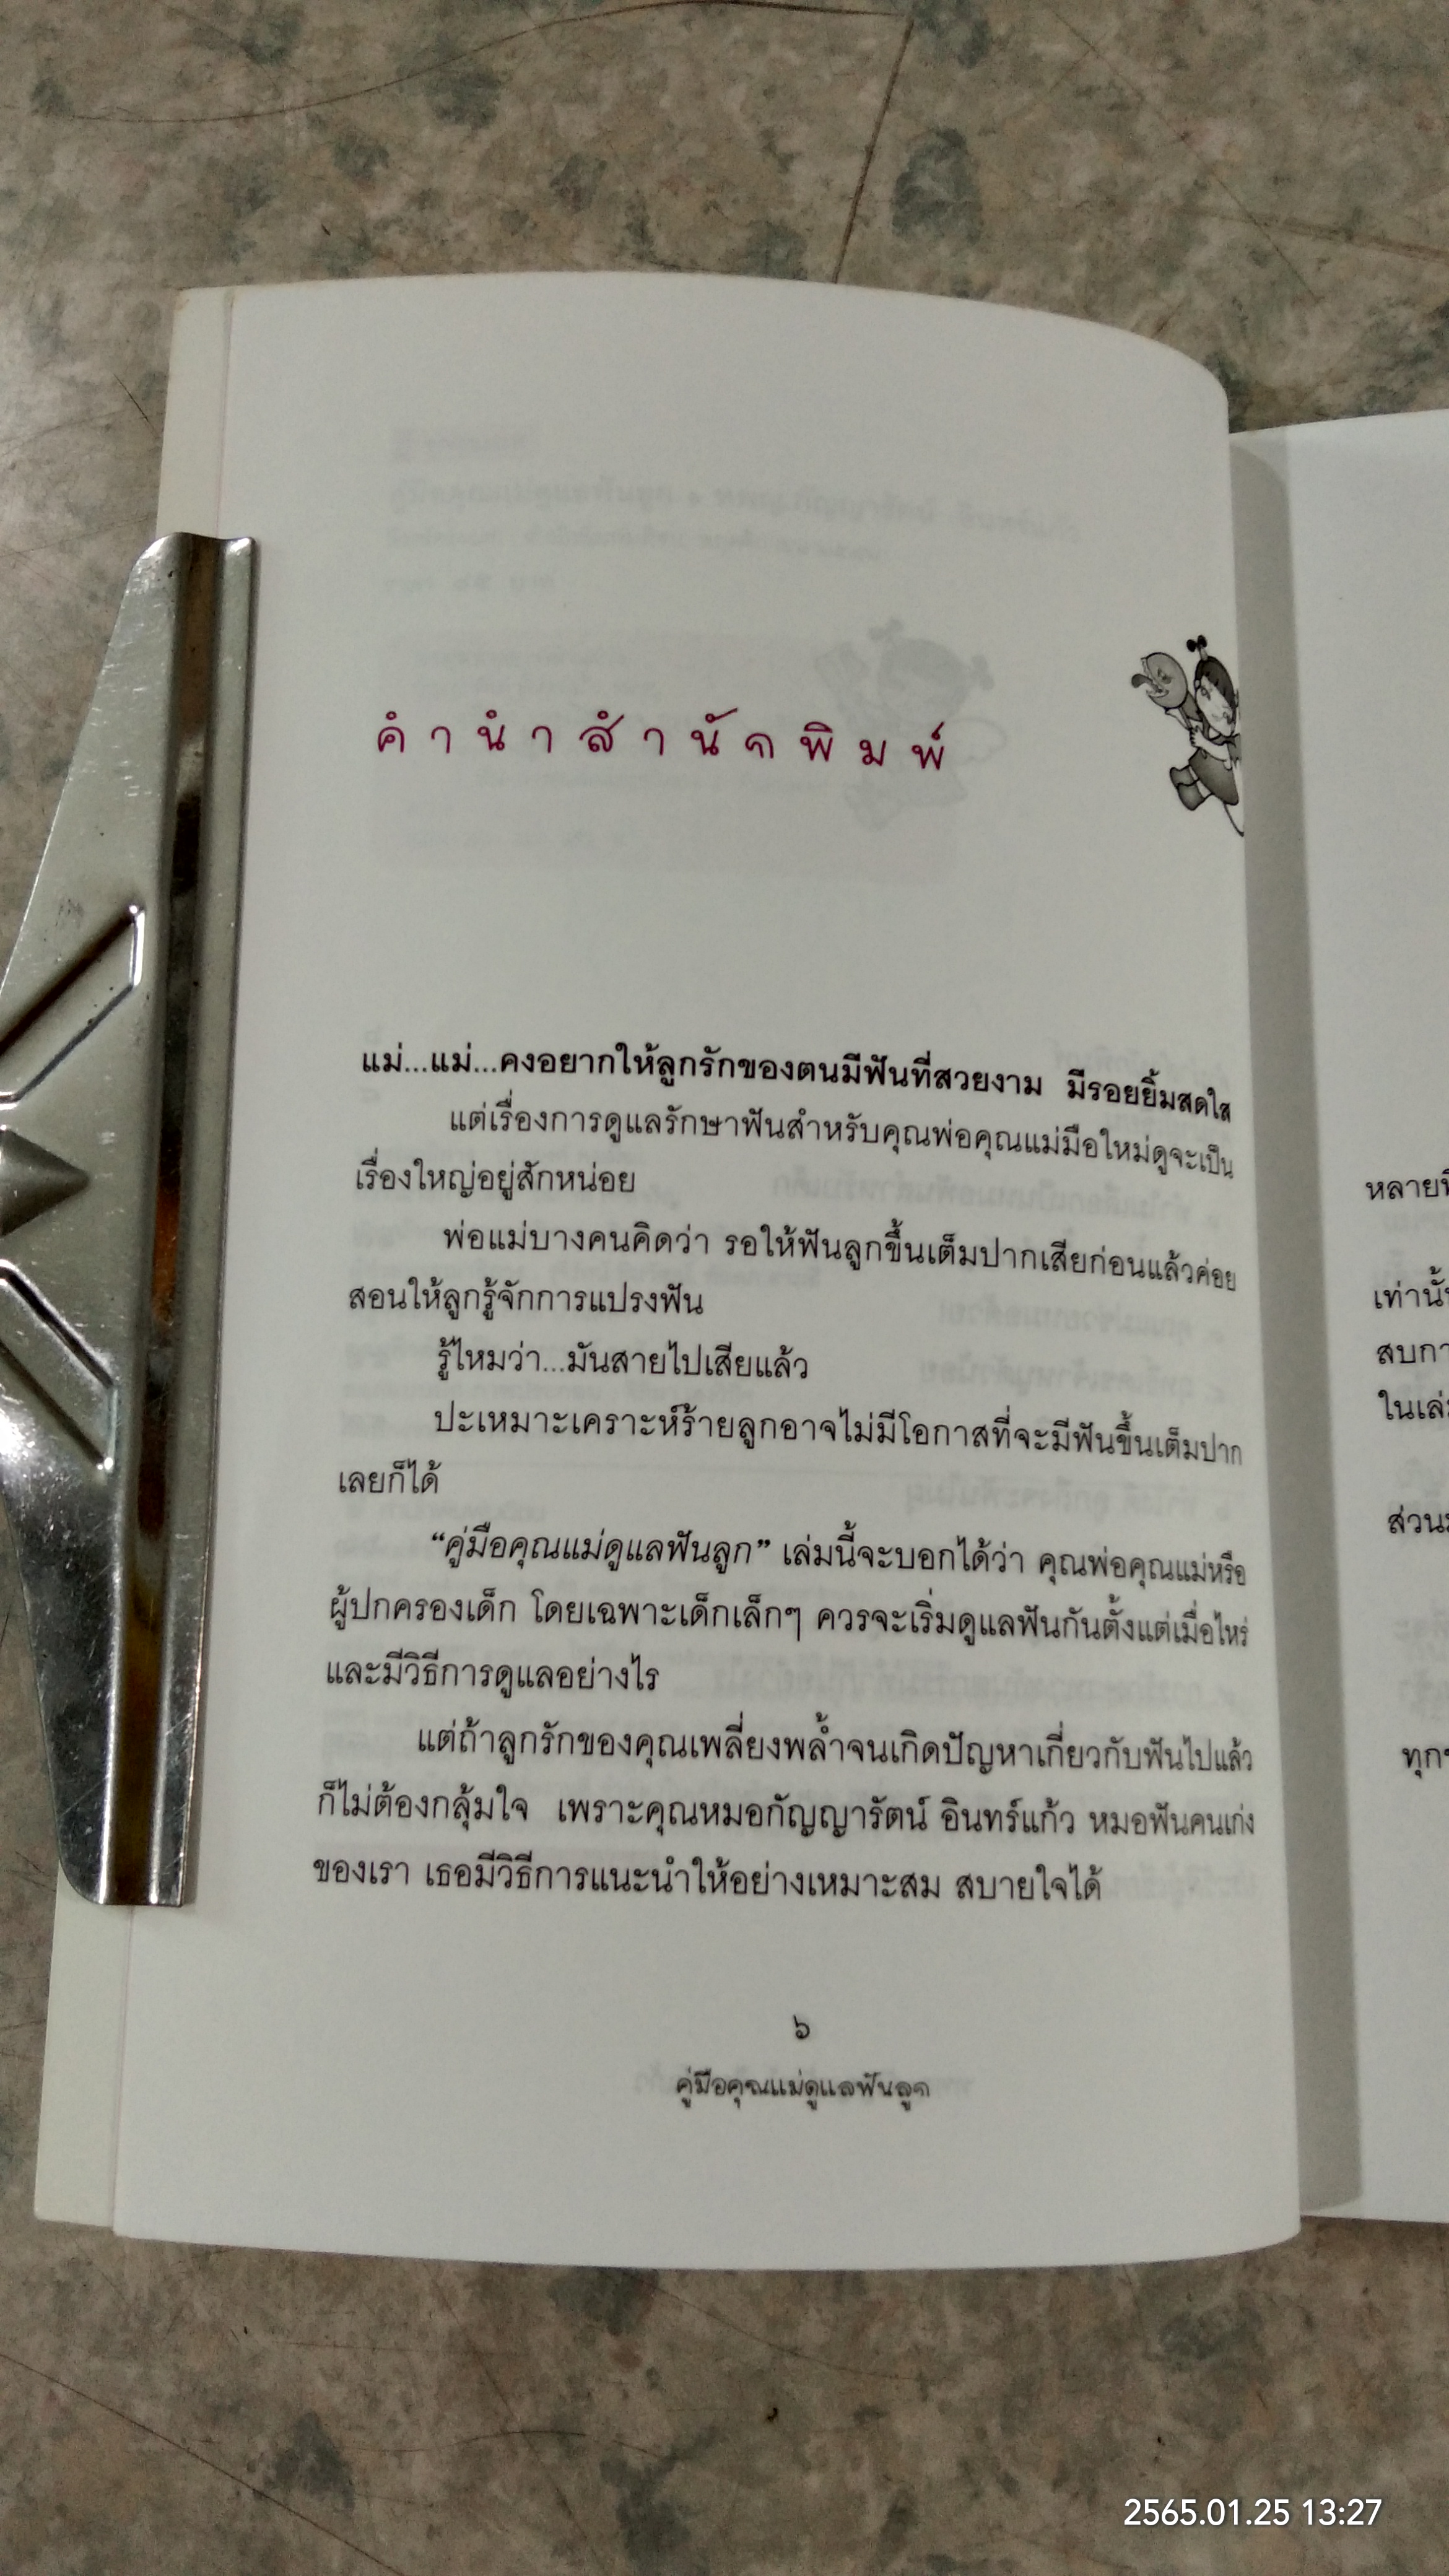 คำนำสำนักพิมพ์
แม่...แม่...คงอยากให้ลูกรักของตนมีฟันที่สวยงาม มีรอยยิ้มสดใส
แต่เรื่องการดูแลรักษาฟันสำหรับคุณพ่อคุณแม่มือใหม่ดูจะเป็น
เรื่องใหญ่อยู่สักหน่อย
พ่อแม่บางคนคิดว่า รอให้ฟันลูกขึ้นเต็มปากเสียก่อนแล้วค่อย
สอนให้ลูกรู้จักการแปรงฟัน
รู้ไหมว่า...มันสายไปเสียแล้ว
ปะเหมาะเคราะห์ร้ายลูกอาจไม่มีโอกาสที่จะมีฟันขึ้นเต็มปาก
เลยก็ได้
“คู่มือคุณแม่ดูแลฟันลูก” เล่มนี้จะบอกได้ว่า คุณพ่อคุณแม่หรือ
ผู้ปกครองเด็ก โดยเฉพาะเด็กเล็กๆ ควรจะเริ่มดูแลฟันกันตั้งแต่เมื่อไหร่
และมีวิธีการดูแลอย่างไร
แต่ถ้าลูกรักของคุณเพลี่ยงพล้ำจนเกิดปัญหาเกี่ยวกับฟันไปแล้ว
ก็ไม่ต้องกลุ้มใจ เพราะคุณหมอกัญญารัตน์ อินทร์แก้ว หมอฟันคนเก่ง
ของเรา เธอมีวิธีการแนะนำให้อย่างเหมาะสม สบายใจได้
๖
คู่มือคุณแม่ดูแลฟันลูก
หลาย
เท่านั้น
สบกา
ในเล่
ส่วน
ทุก
2565.01.25 13:27